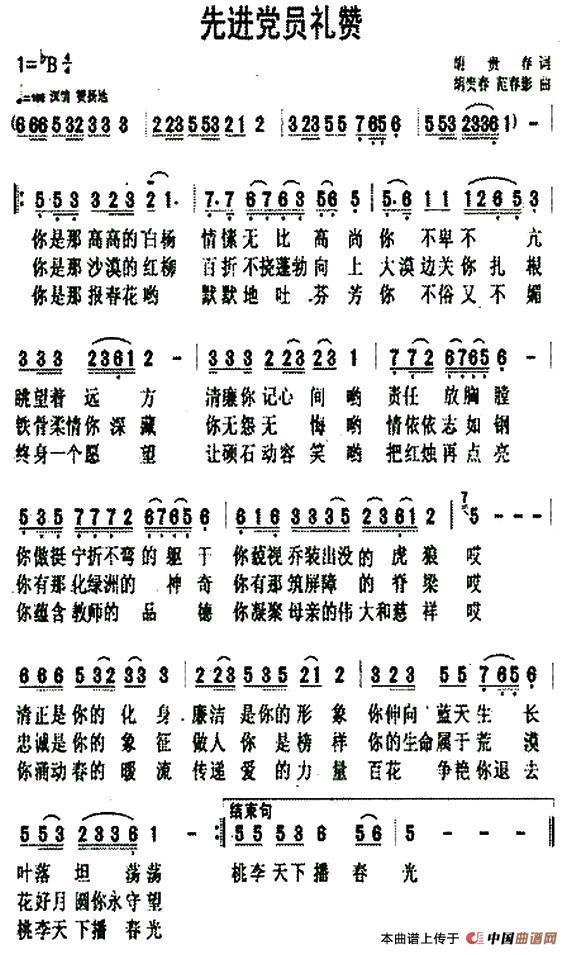 先进党员礼赞
1=♭B 4/4
胡贵春 词
胡贵春 范春影 曲
深情 赞扬地
(6 6 6 5 3 2 3 3 3 | 2 2 3 5 5 3 2 1 2 | 3 2 3 5 5 7 6 5 6 | 5 5 3 2 3 3 6 1) | - |
5 5 3 3 2 3 2 1. | 7. 7 6 7 6 3 5 6 5 | 5. 6 1 1 1 2 6 5 3 |
你是那高高的白杨 情愫无比高尚你 不卑不 亢
你是那沙漠的红柳 百折不挠蓬勃向上 大漠边关你扎根
你是那报春花哟 默默地吐芬芳你 不俗又不媚
3 3 3 2 3 6 1 2 - | 3 3 3 2 2 3 2 3 1 | 7 7 2 6 7 6 5 6 - |
眺望着 远 方 清廉你记心间哟 责任 放胸膛
铁骨柔情你深藏 你无怨无 悔哟 情依依志如钢
终身一个愿 望 让顽石动容笑哟 把红烛再点亮
5 3 5 7 7 7 2 6 7 6 5 6 | 6 1 6 3 3 3 5 2 3 6 1 2 | 7 5 - - |
你傲挺宁折不弯的躯干 你藐视乔装出没的虎狼哎
你有那化绿洲的 神奇 你有那筑屏障的脊梁哎
你蕴含教师的品 德 你凝聚母亲的伟大和慈祥哎
6 6 6 5 3 2 3 3 3 | 2 2 3 5 3 5 2 1 2 | 3 3 2 3 5 5 7 6 5 6 |
清正是你的化身 廉洁是你的形象 你伸向蓝天生长
忠诚是你的象征 做人你是榜样 你的生命属于荒漠
你涌动春的暖流 传递爱的力量 百花争艳你退去
5 5 3 2 3 3 6 1 - | 结束句 5 5 5 5 3 6 5 6 | 5 - - - |
叶落坦荡荡 桃李天下播春光
花好月圆你永守望
桃李天下播春光
本曲谱上传于 中国曲谱网